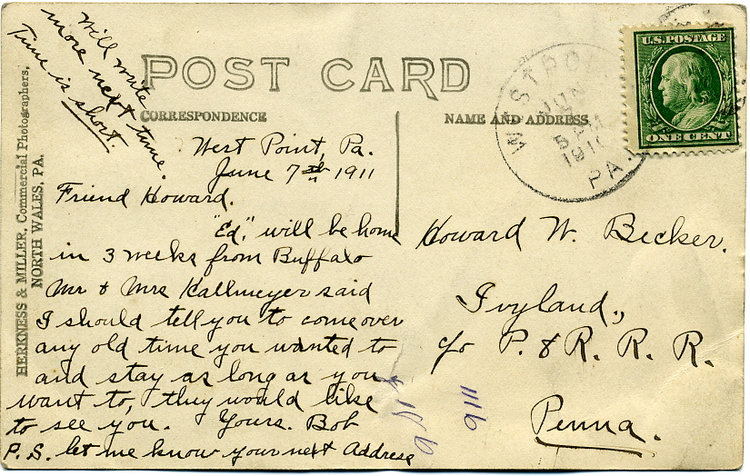 Will write
more next time.
Time is short.
POST CARD
CORRESPONDENCE
NAME AND ADDRESS
U.S. POSTAGE
ONE CENT
JUN
5 AM
PA.
HERKNESS & MILLER, Commercial Photographers,
NORTH WALES, PA.
West Point, Pa.
June 7th 1911
Friend Howard.
"Ed", will be home
in 3 weeks from Buffalo
Mr & Mrs Kallmeyer said
I should tell you to come over
any old time you wanted to
and stay as long as you
want to, they would like
to see you. Yours. Bob
P.S. let me know your next Address
Howard W. Becker.
Ivyland,
c/o P. & R. R. R.
Penna.